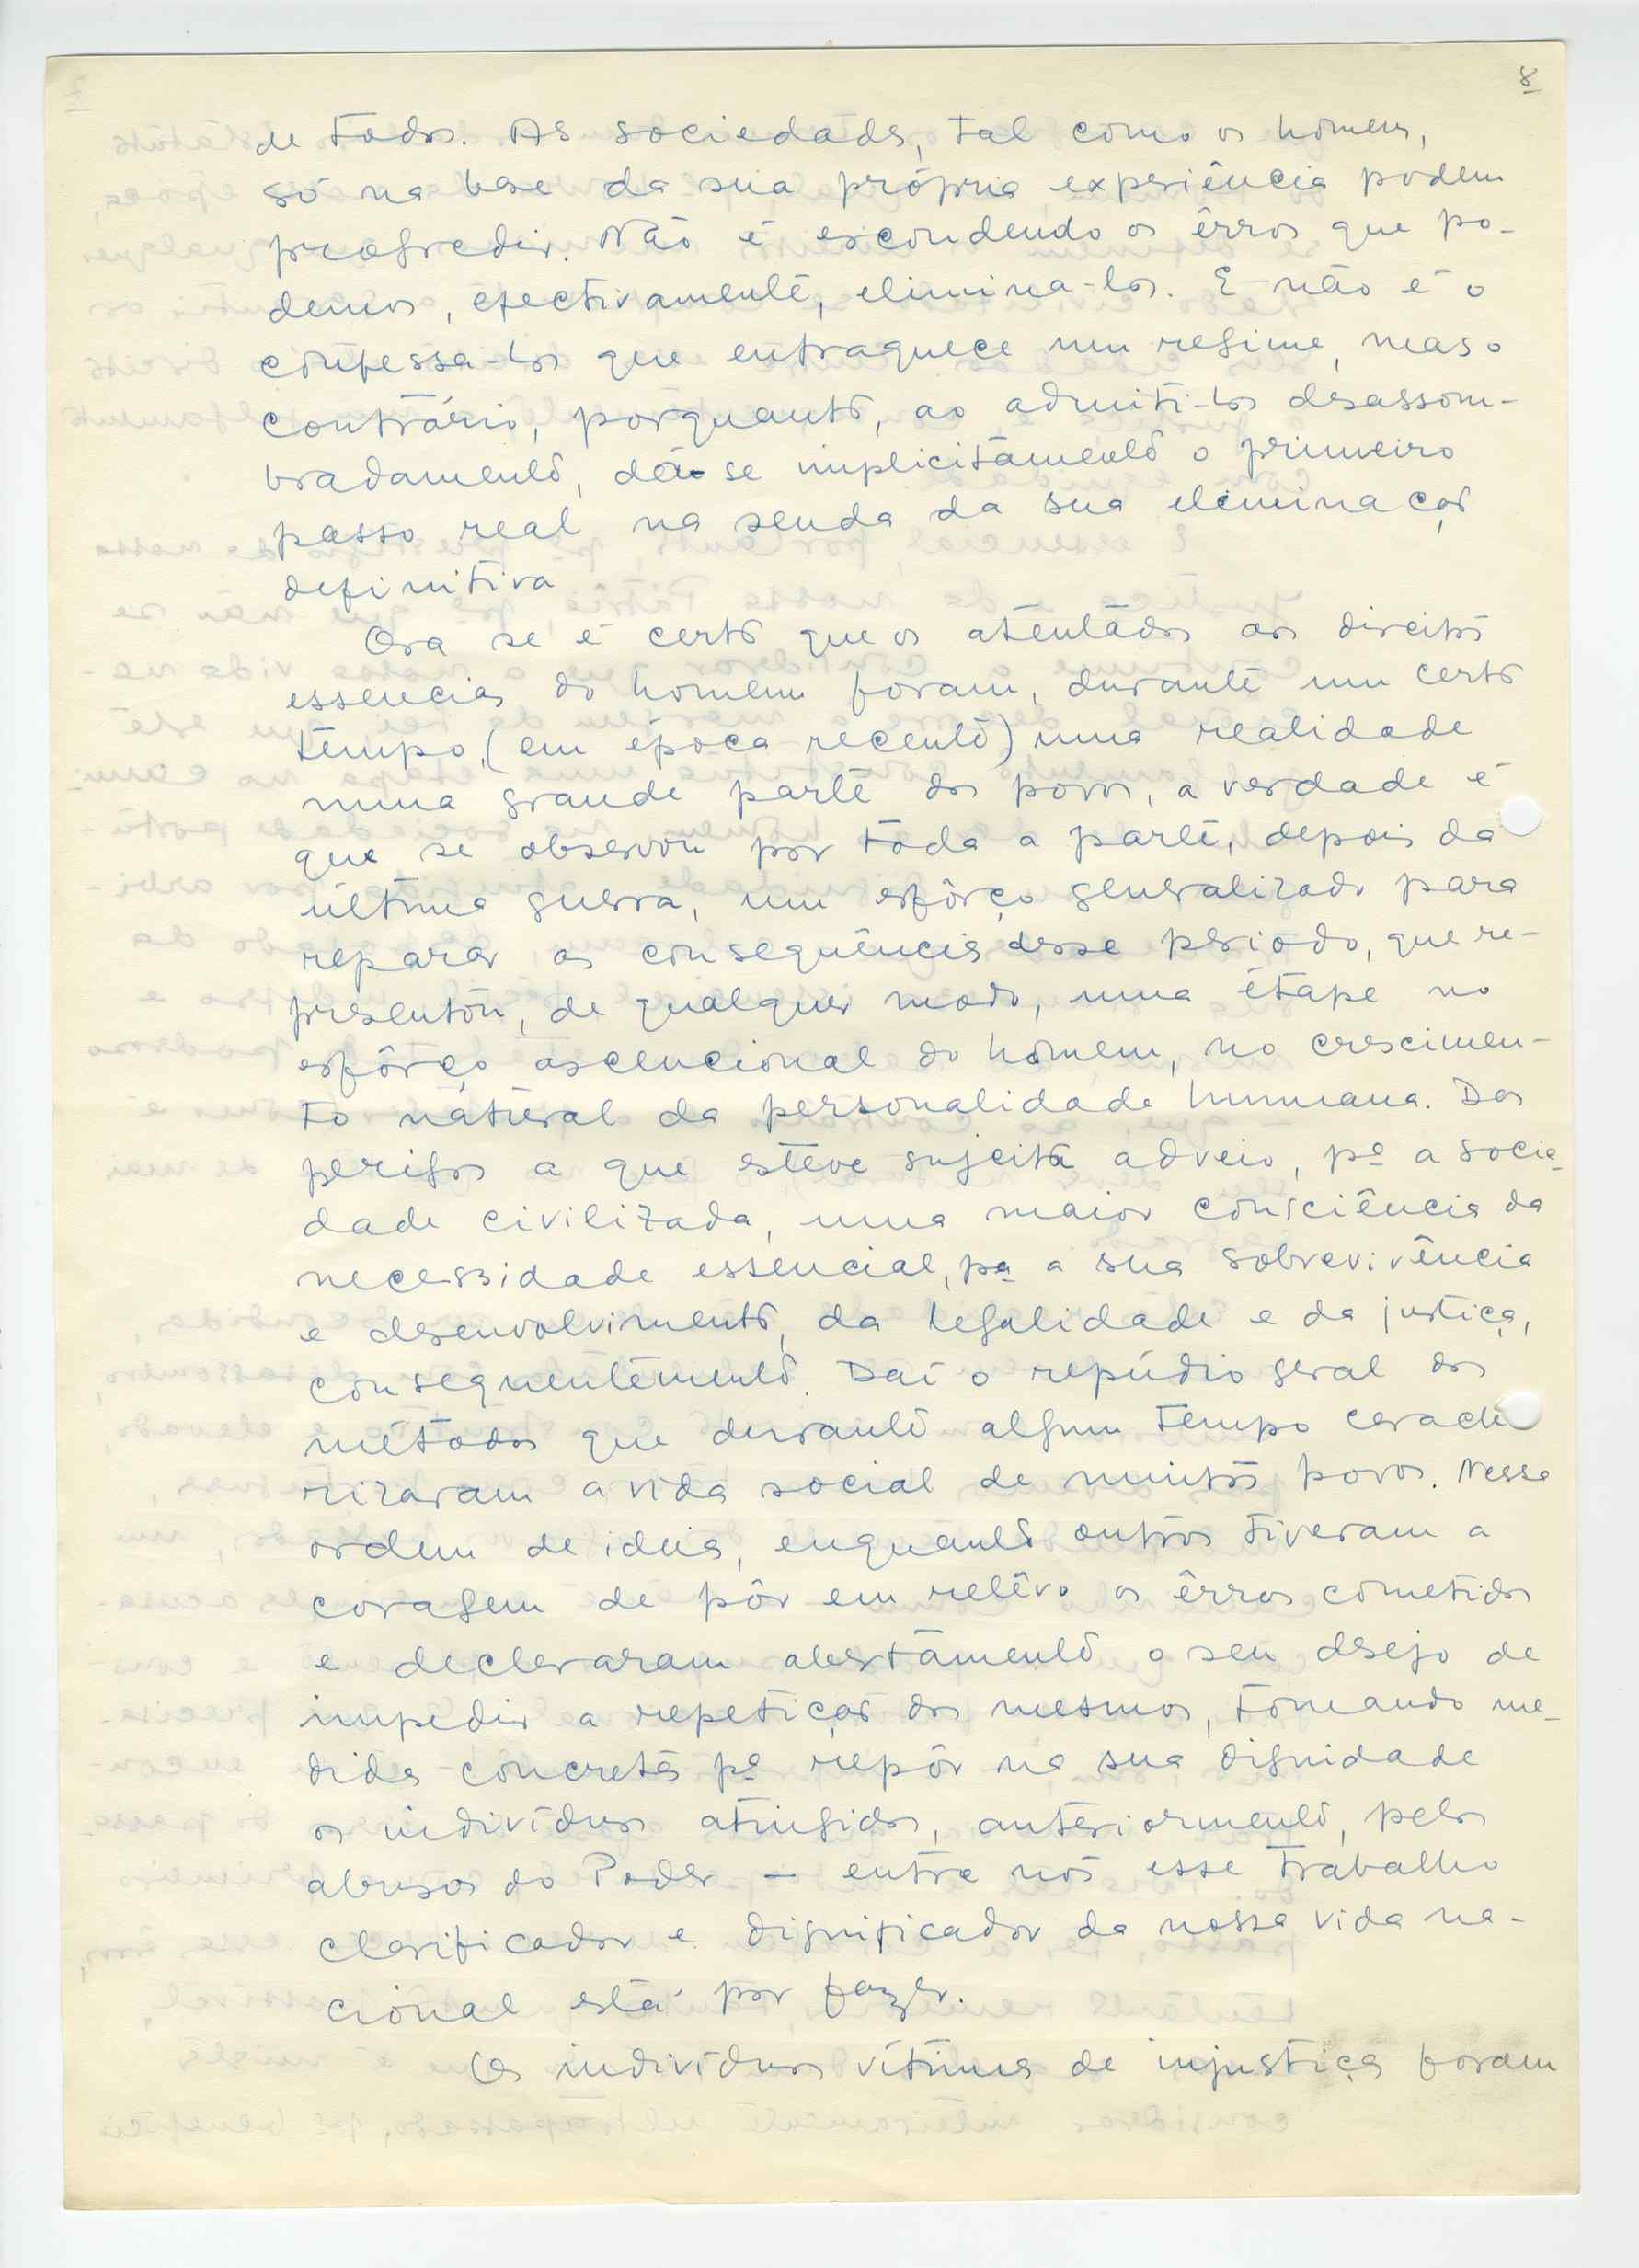 8
de todos. As sociedades, tal como os homens,
só na base da sua própria experiência podem
progredir. Não é escondendo os êrros que po-
demos, efectivamente, elimina-los. E não é o
confessa-los que enfraquece um regime, mas o
contrário, porquanto, ao admiti-los desassom-
bradamente, dá-se implicitamente o primeiro
passo real na senda da sua eliminação
definitiva
Ora se é certo que os atentados aos direitos
essenciais do homem foram, durante um certo
tempo, (em época recente) uma realidade
numa grande parte dos povos, a verdade é
que se observou por tôda a parte, depois da
última guerra, um esfôrço generalizado para
reparar as consequências desse periodo, que re-
presentou, de qualquer modo, uma étape no
esfôrço ascencional do homem, no crescimen-
to natural da personalidade humana. Dos
perigos a que esteve sujeita adveio, pª a socie-
dade civilizada, uma maior consciência da
necessidade essencial, pª a sua sobrevivência
e desenvolvimento, da legalidade e da justiça,
consequentemente. Daí o repúdio geral dos
métodos que durante algum tempo caracte
rizaram a vida social de muitos povos. Nessa
ordem de ideias, enquanto outros tiveram a
coragem de pôr em relêvo os êrros cometidos
e declararam abertamente o seu desejo de
impedir a repetição dos mesmos, tomando me-
didas concretas pª repôr na sua dignidade
os indivíduos atingidos, anteriormente, pelos
abusos do Poder — entre nós esse trabalho
clarificador e dignificador da nossa vida na-
cional está por fazer.
Os indivíduos vítimas de injustiças foram